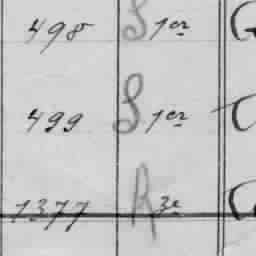 498 S 1er
499 S 1er
1377 R 3e